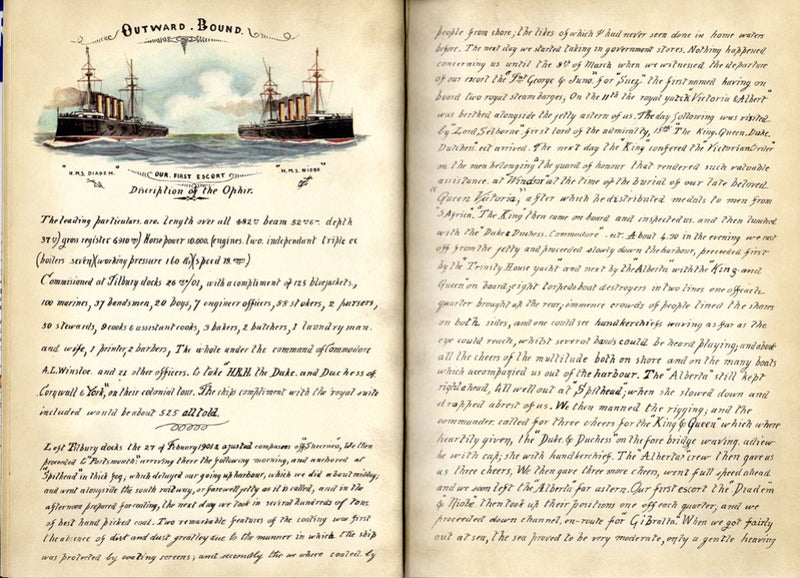 OUTWARD . BOUND.
"H.M.S. DIADEM."
OUR. FIRST ESCORT
"H.M.S. NIOBE"
Discription of the Ophir.
The leading particulars. are. length over all 482 beam 52 depth
37 gross register 6910 Horse power 10.000. (engines. two. independent triple ex
(boilers seven) (working pressure 160 lbs) (speed 18.
Commisioned at Tilbury docks 26 /01, with a compliment of 125 bluejackets,
100 marines, 37 bandsmen, 20 boys, 7 engineer officers, 88 stokers, 2 pursers,
30 stewards, 9 cooks & assistant cooks, 3 bakers, 2 butchers, 1 laundry man.
and wife, 1 printer, 2 barbers, The whole under the command of Commodore
A.L. Winsloe. and 22 other officers. to take "H.R.H. the Duke. and Duchess of
Cornwall & York", on their colonial tour. The ships compliment with the royal suite
included would be about 525 all told.
Left Tilbury docks the 27 of 1901 & ajusted compasses off "Sheerness", We then
proceeded to "Portsmouth". arriving there the following morning, and anchored at
"Spithead" in thick fog; which delayed our going up harbour, which we did about midday,
and went alongside the south railway, or farewell jetty as it is called, and in the
afternoon prepared for coaling, the next day we took in several hundreds of tons
of best hand picked coal. Two remarkable features of the coaling was first
the absence of dirt and dust greatley due to the manner in which the ship
was protected by coaling screens; and secondly the we where coaled by
people from shore; the likes of which I had never seen done in home waters
before. The next day we started taking in government stores. Nothing happened
concerning us until the 8th of March when we witnessed the departure
of our escort the "St George & Juno". for "Suez" the first named having on
board two royal steam barges, On the 11th the royal yatch "Victoria & Albert"
was berthed alongside the jetty astern of us. The day following was visited
by "Lord Selborne" first lord of the admiralty, 15th "The King. Queen. Duke.
Dutchess" ect arrived. The next day the "King" confered the "Victorian Order"
on the men belonging the guard of honour that rendered such valuable
assistance. at "Windsor" at the time of the burial of our late beloved.
"Queen Victoria; after which he distributed medals to men from
"S Africa". "The King" then came on board and inspected us. and then lunched
with the "Duke & Duchess. Commodore" . ect. About 4.30 in the evening we cast
off from the jetty and proceeded slowly down the harbour, preceeded first
by the "Trinity House yacht" and next by the "Alberta" with the "King and
Queen" on board; eight torpedo boat destroyers in two lines one off each
quarter brought up the rear; immence crowds of people lined the shores
on both sides, and one could see handkerchiefs waving as far as the
eye could reach, whilst several bands could be heard playing; and above
all the cheers of the multitude both on shore and on the many boats
which accompanied us out of the harbour. The "Alberta" still kept
right ahead, till well out at "Spithead"; when she slowed down and
dropped abrest of us. We then manned the rigging; and the
commander called for three cheers for the "King & Queen" which where
heartily given, the "Duke & Duchess" on the fore bridge waving. adiew
he with cap; she with handkerchief. The "Albertas" crew then gave us
us three cheers, We then gave three more cheers, went full speed ahead
and we soon left the "Alberta" far astern. Our first escort the "Diadem
& Niobe" then took up their positions one off each quarter, and we
proceeded down channel, en-route for "Gibralta". When we got fairly
out at sea, the sea proved to be very moderate, only a gentle heaving